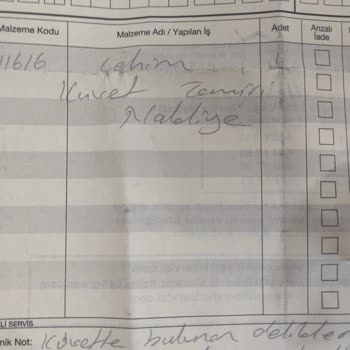 Malzeme Kodu Malzeme Adı / Yapılan İş Adet Arızalı İade
11616 çekim 1
Küvet Tamiri
Nakliye
Lİ SERVİS
nik Not: Küvette bulunan delikler